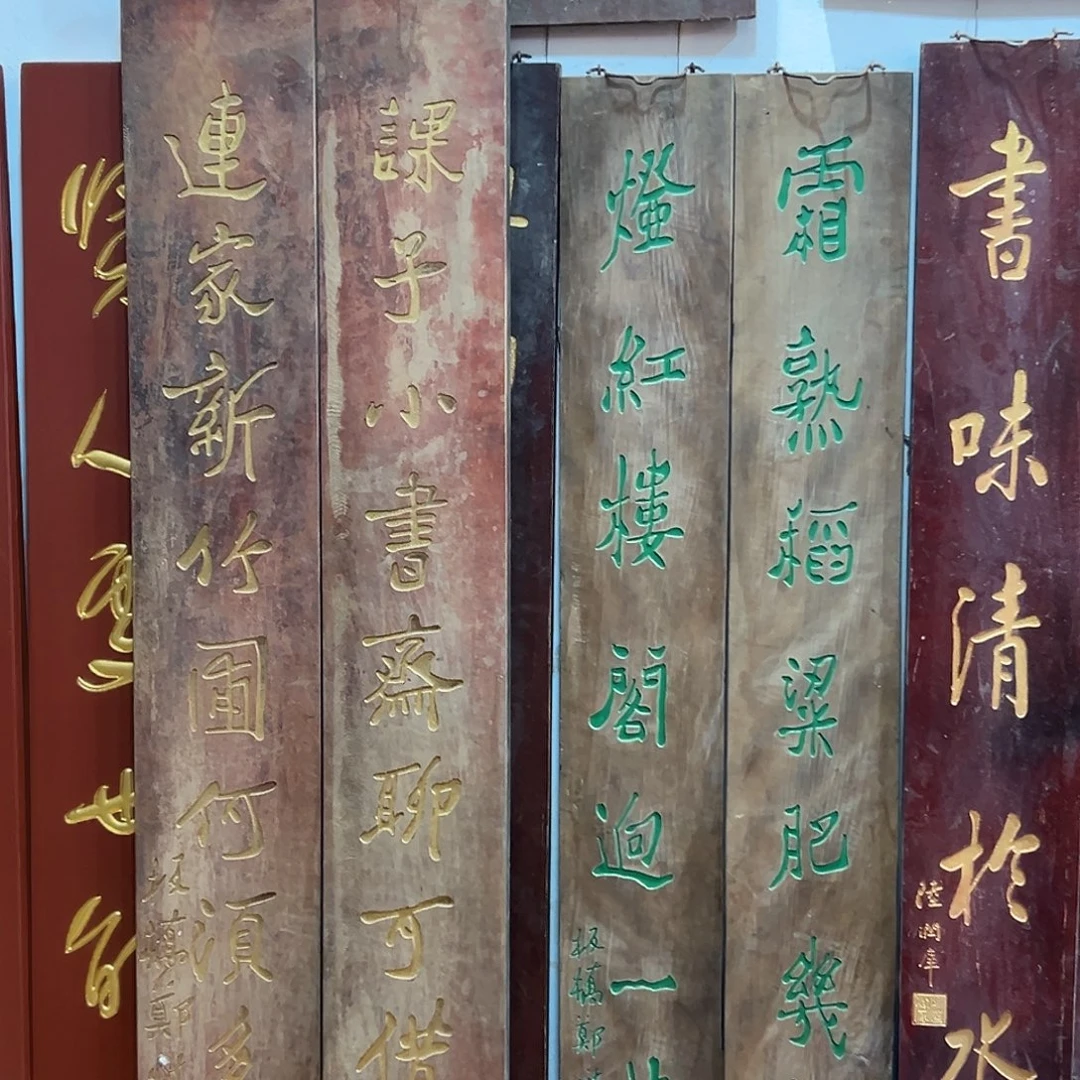 書味清於水
陸潤庠
霜熟稻粱肥幾
燈紅樓閣迥一
板橋鄭
課子小書齋聊可借
連家新竹圃何須多
板橋鄭